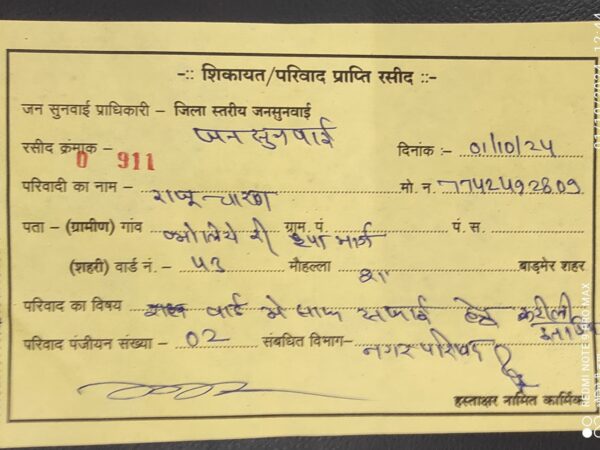 -:: शिकायत/परिवाद प्राप्ति रसीद ::-
जन सुनवाई प्राधिकारी – जिला स्तरीय जनसुनवाई
जन सुनवाई
रसीद क्रंमाक – 0 911 दिनांक :– 01/10/24
परिवादी का नाम – राजू चारण मो. न. 7742492809
पता – (ग्रामीण) गांव ग्राम. पं. पं. स.
(शहरी) वार्ड नं. – 43 मौहल्ला बाड़मेर शहर
परिवाद का विषय वार्ड मे साफ सफाई हेतु
परिवाद पंजीयन संख्या – 02 संबधित विभाग– नगर परिषद
हस्ताक्षर नामित कार्मिक
REDMI NOTE 9 PRO MAX